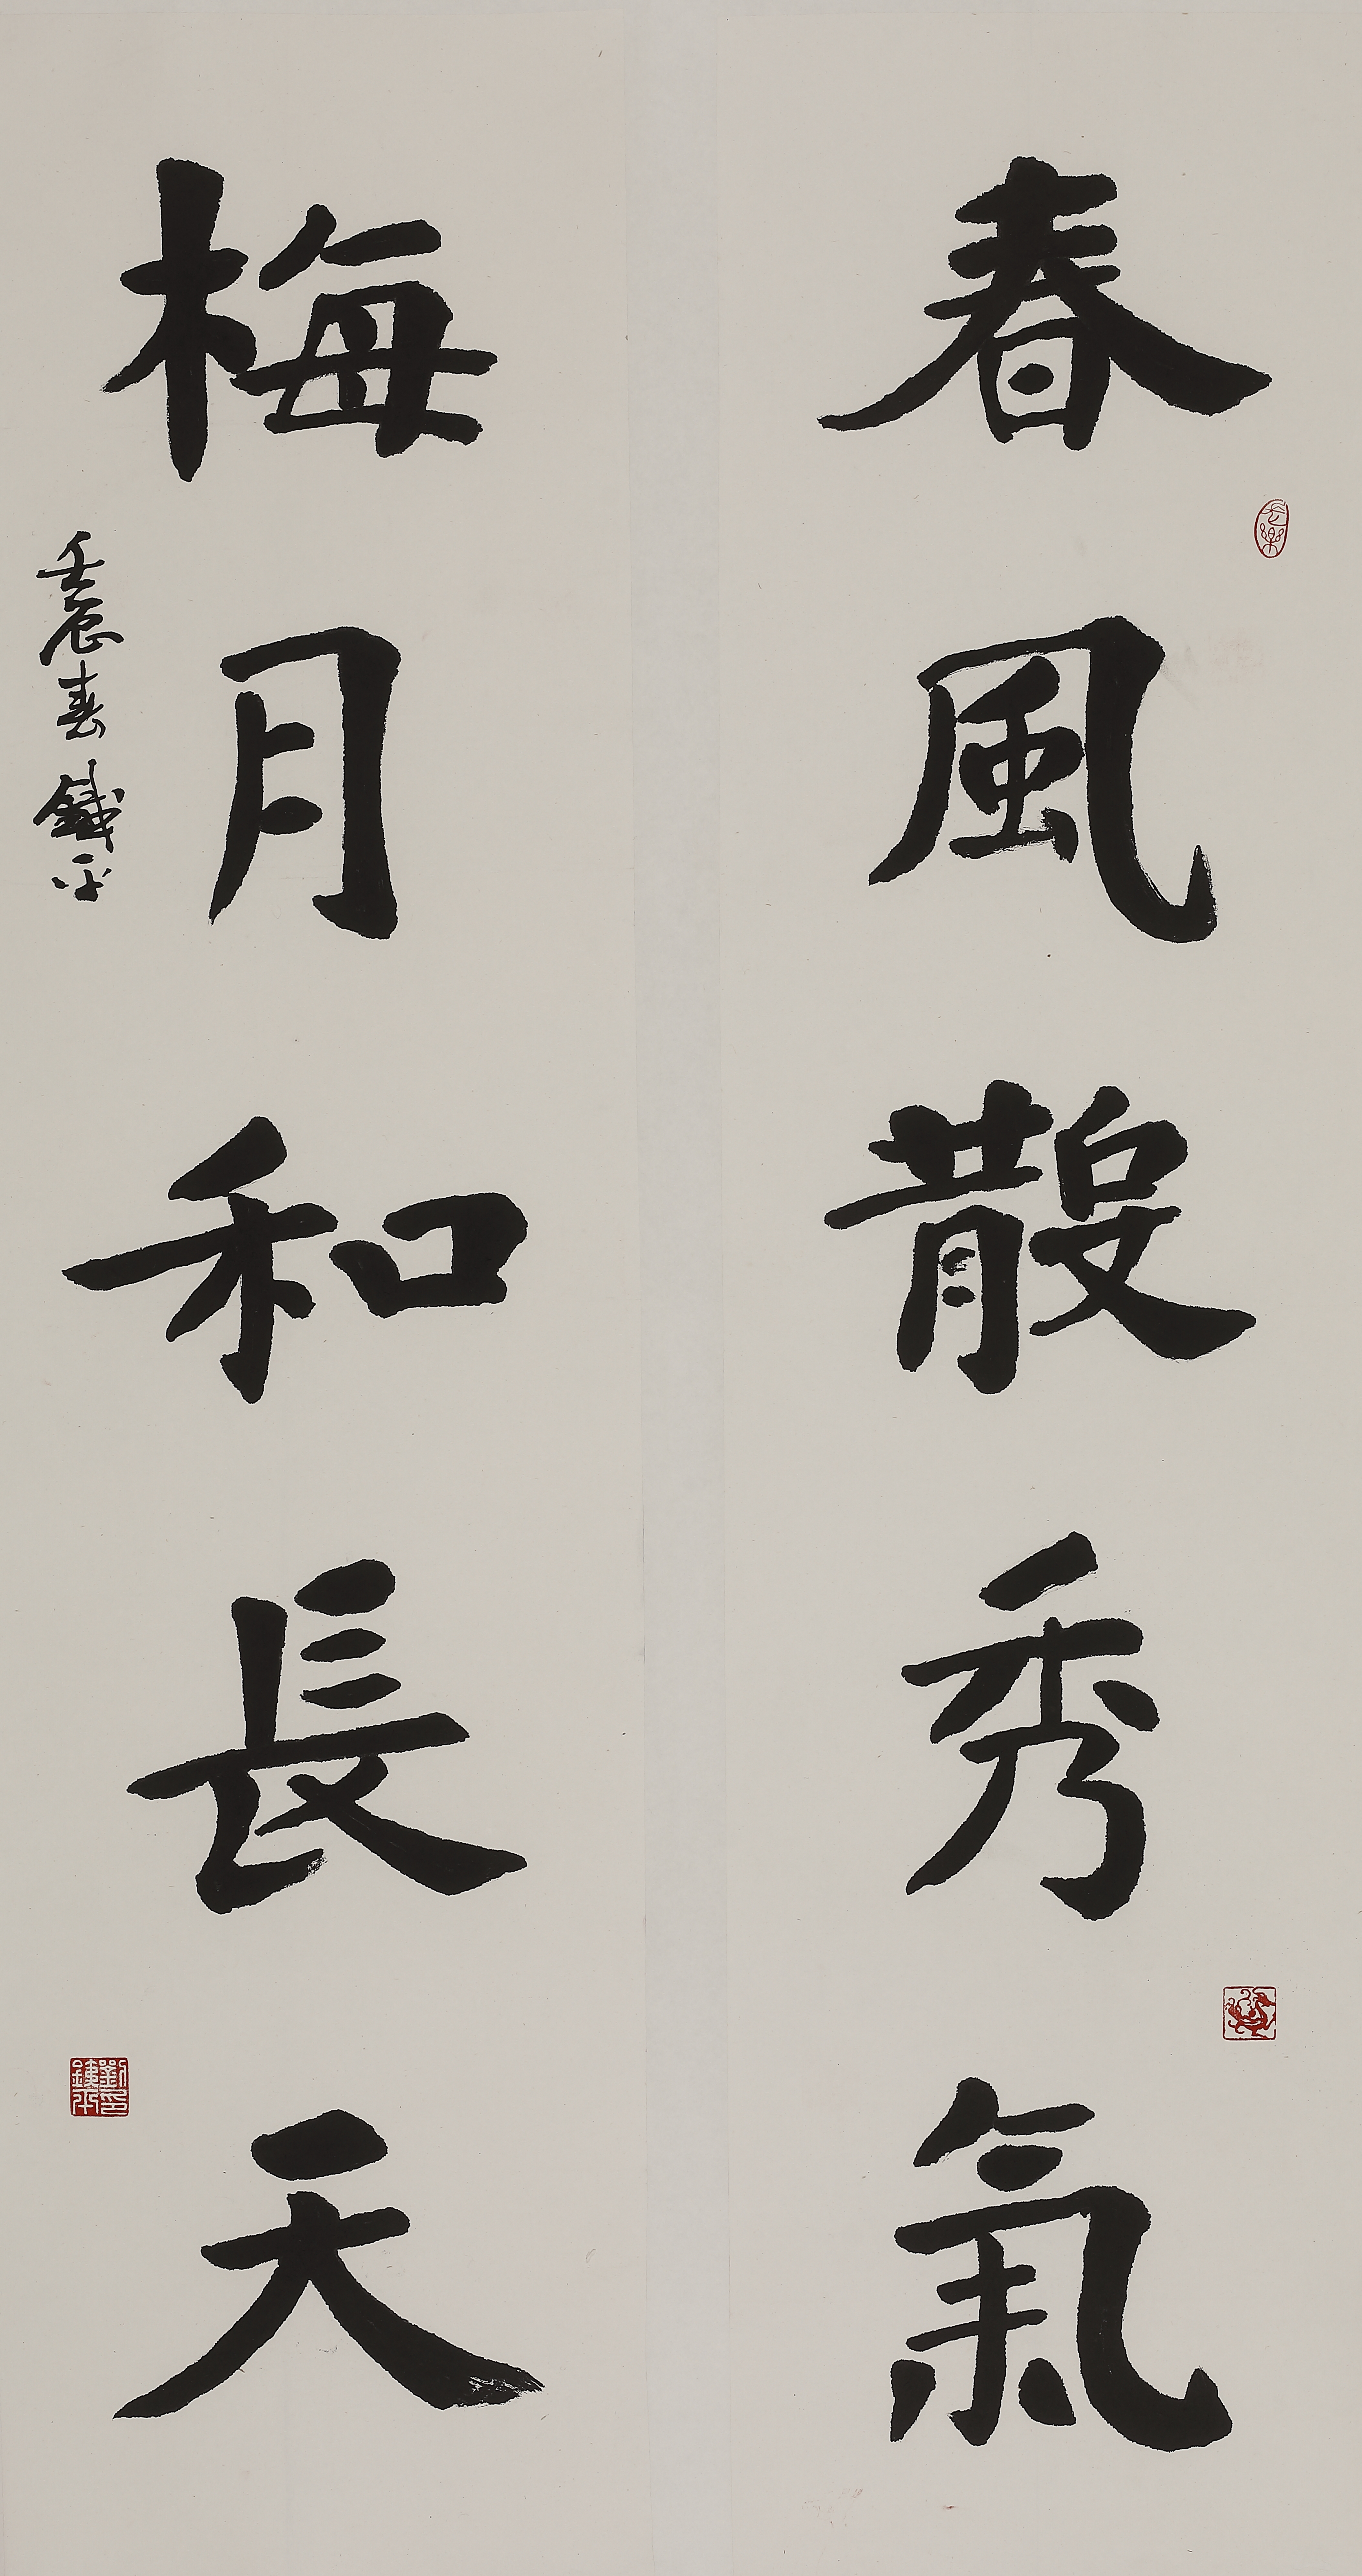 春風散秀氣
梅月和長天
壬辰春 鐵平
長樂
劉鐵平印